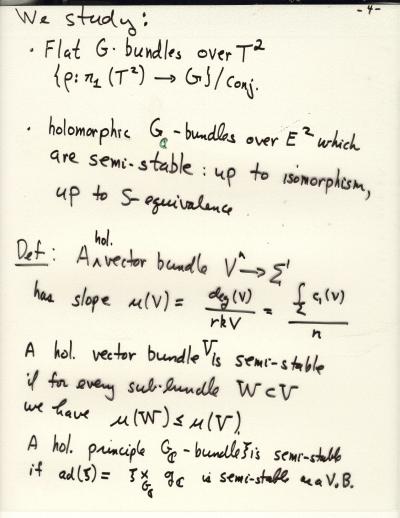 -4-
We study:
• Flat G-bundles over T²
{ρ: π₁(T²) → G}/conj.
• holomorphic G_ℂ-bundles over E² which
are semi-stable: up to isomorphism,
up to S-equivalence
Def: A hol. vector bundle Vⁿ → Σ¹
has slope μ(V) = deg(V)/rkV = ∫_Σ c₁(V)/n
A hol. vector bundle V is semi-stable
if for every sub-bundle W ⊂ V
we have μ(W) ≤ μ(V).
A hol. principle G_ℂ-bundle ξ is semi-stable
if ad(ξ) = ξ ×_{G_ℂ} g_ℂ is semi-stable as a V.B.